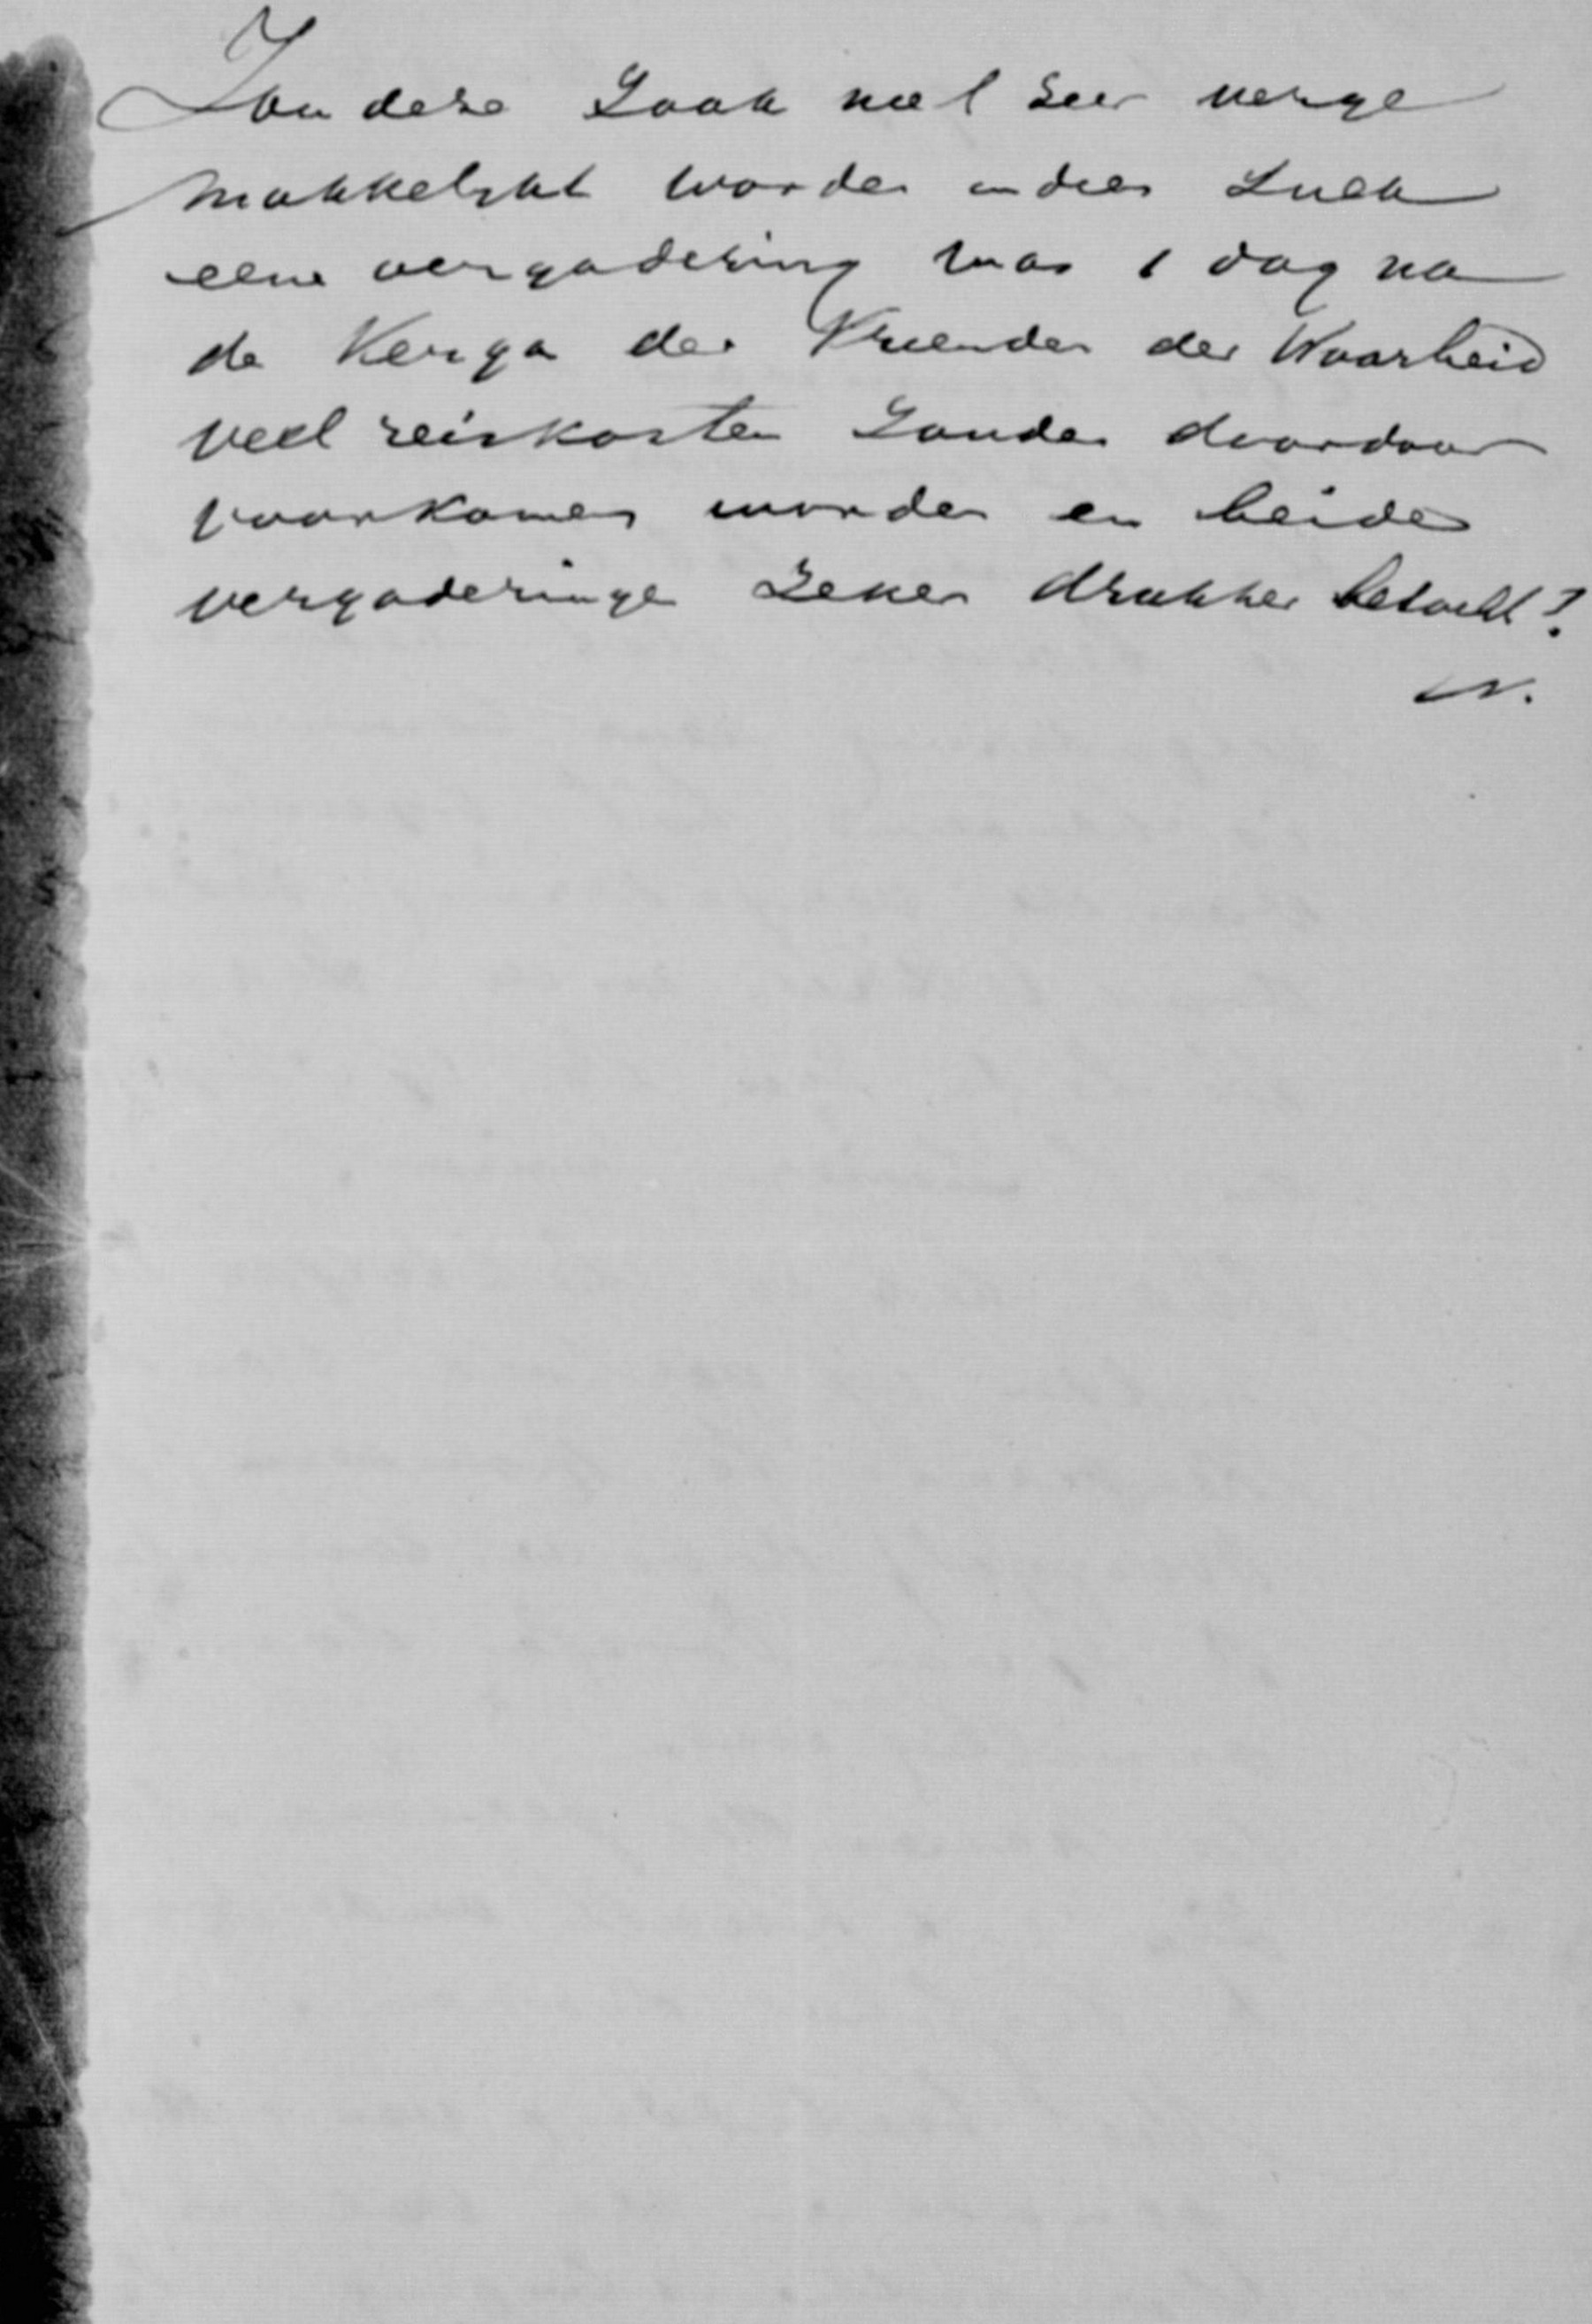 Zou deze Zaak niet zeer verge
makkelijkt worden indien Zulk
eene vergadering was 1 dag na
de Verga der Vrienden der Waarheid
veel reiskosten Zouden daardoor
voorkomen worden en beide
vergaderingen Zeker drukker bezocht?
N.